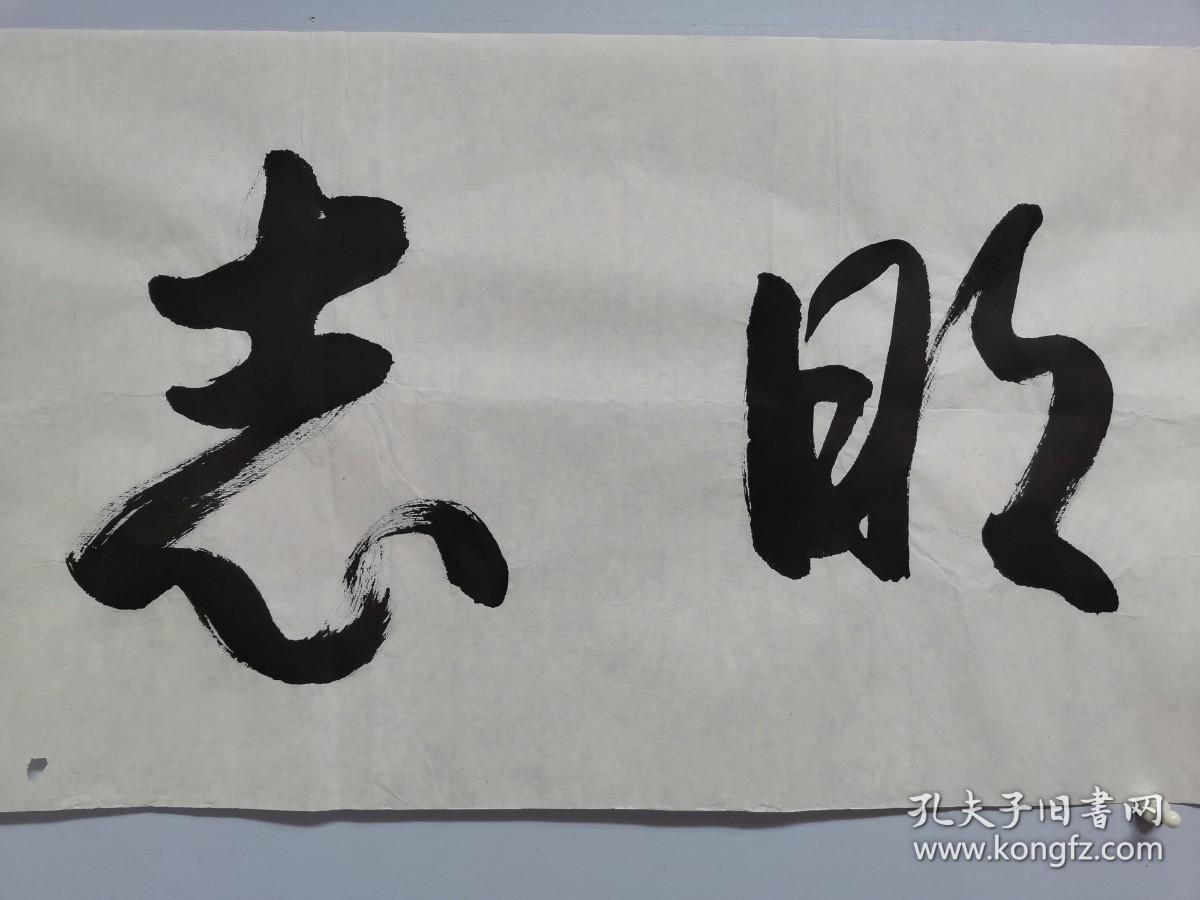 明志
孔夫子旧書网
www.kongfz.com